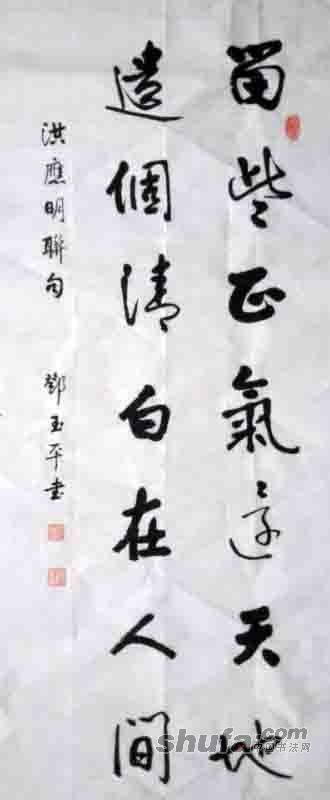 留些正氣還天地
遺個清白在人間
洪應明聯句 鄧玉平書
shufa.com
中国书法网